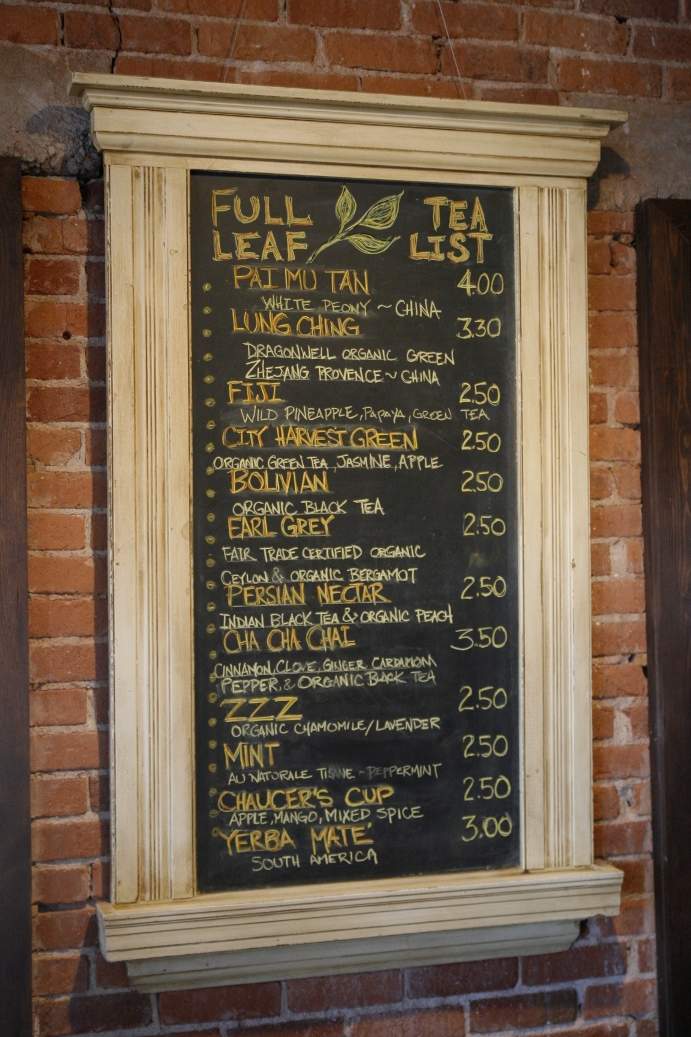 FULL LEAF TEA LIST
PAI MU TAN 4.00
WHITE PEONY ~ CHINA
LUNG CHING 3.30
DRAGONWELL ORGANIC GREEN
ZHEJANG PROVENCE ~ CHINA
FIJI 2.50
WILD PINEAPPLE, PAPAYA, GREEN TEA
CITY HARVEST GREEN 2.50
ORGANIC GREEN TEA, JASMINE, APPLE
BOLIVIAN 2.50
ORGANIC BLACK TEA
EARL GREY 2.50
FAIR TRADE CERTIFIED ORGANIC
CEYLON & ORGANIC BERGAMOT
PERSIAN NECTAR 2.50
INDIAN BLACK TEA & ORGANIC PEACH
CHA CHA CHAI 3.50
CINNAMON, CLOVE, GINGER CARDAMOM
PEPPER, & ORGANIC BLACK TEA
ZZZ 2.50
ORGANIC CHAMOMILE/LAVENDER
MINT 2.50
AU NATURALE TISANE - PEPPERMINT
CHAUCER'S CUP 2.50
APPLE, MANGO, MIXED SPICE
YERBA MATÉ 3.00
SOUTH AMERICA